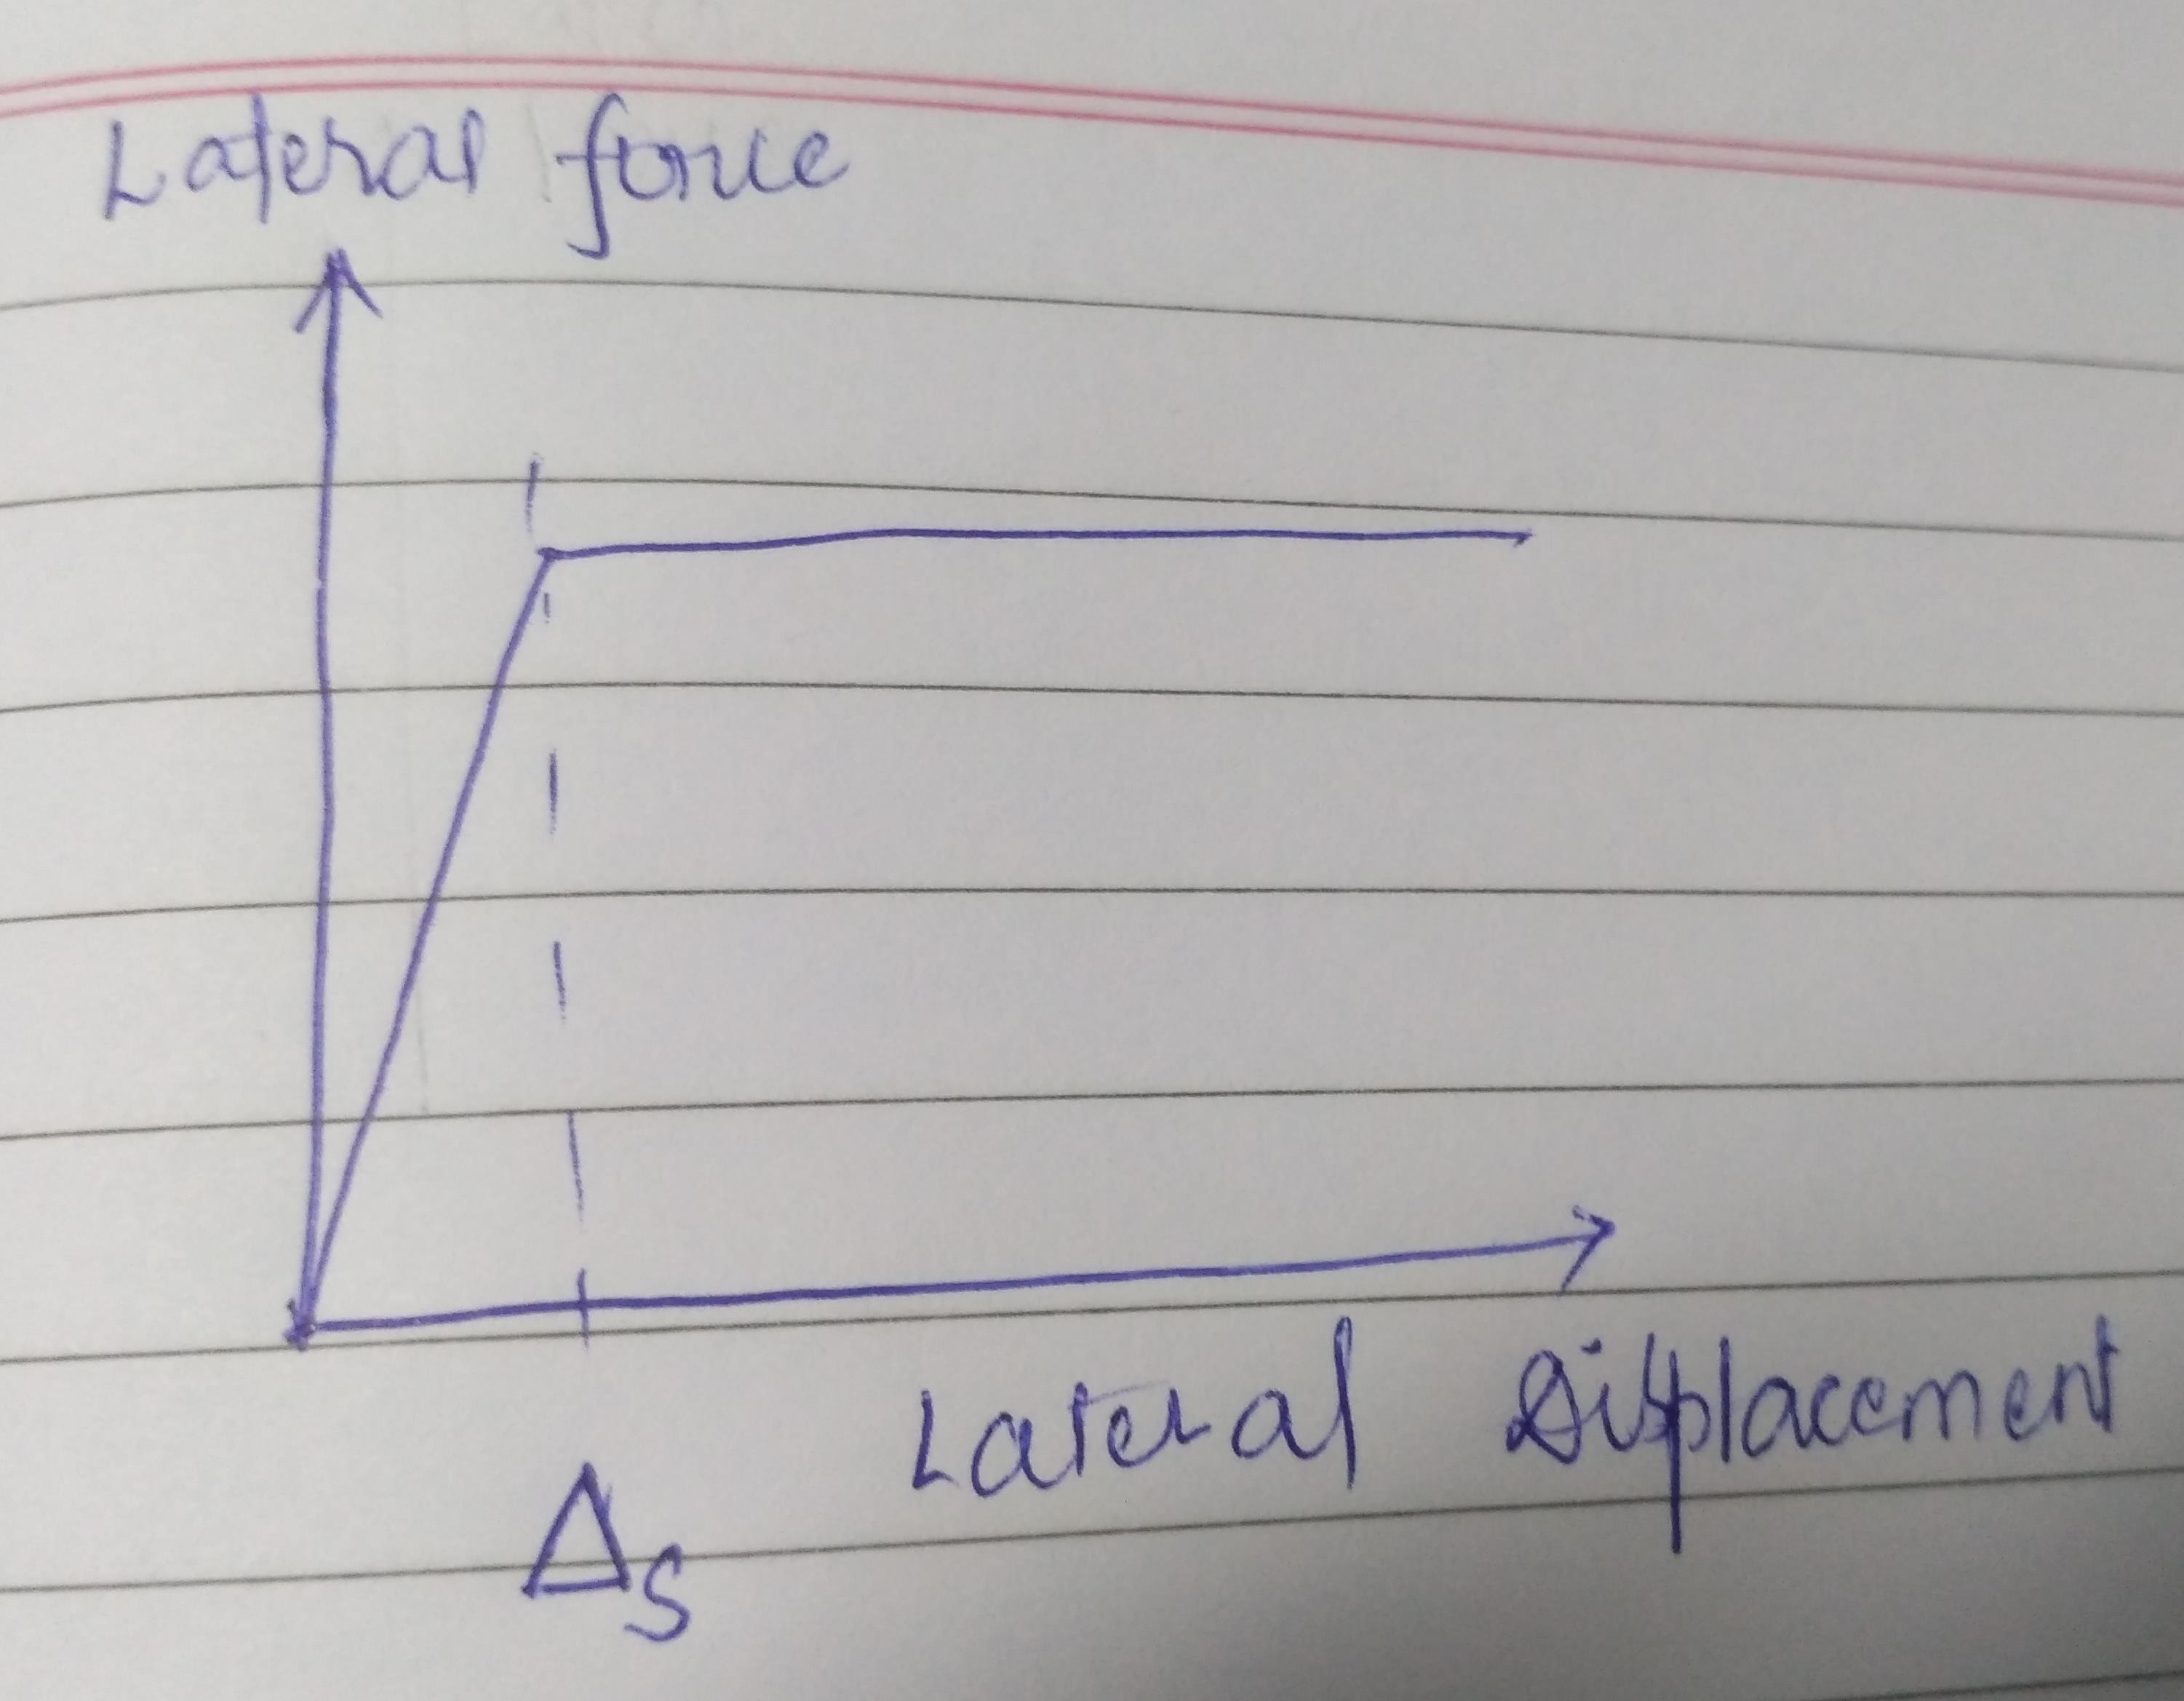 Lateral force
Lateral Displacement
Δs